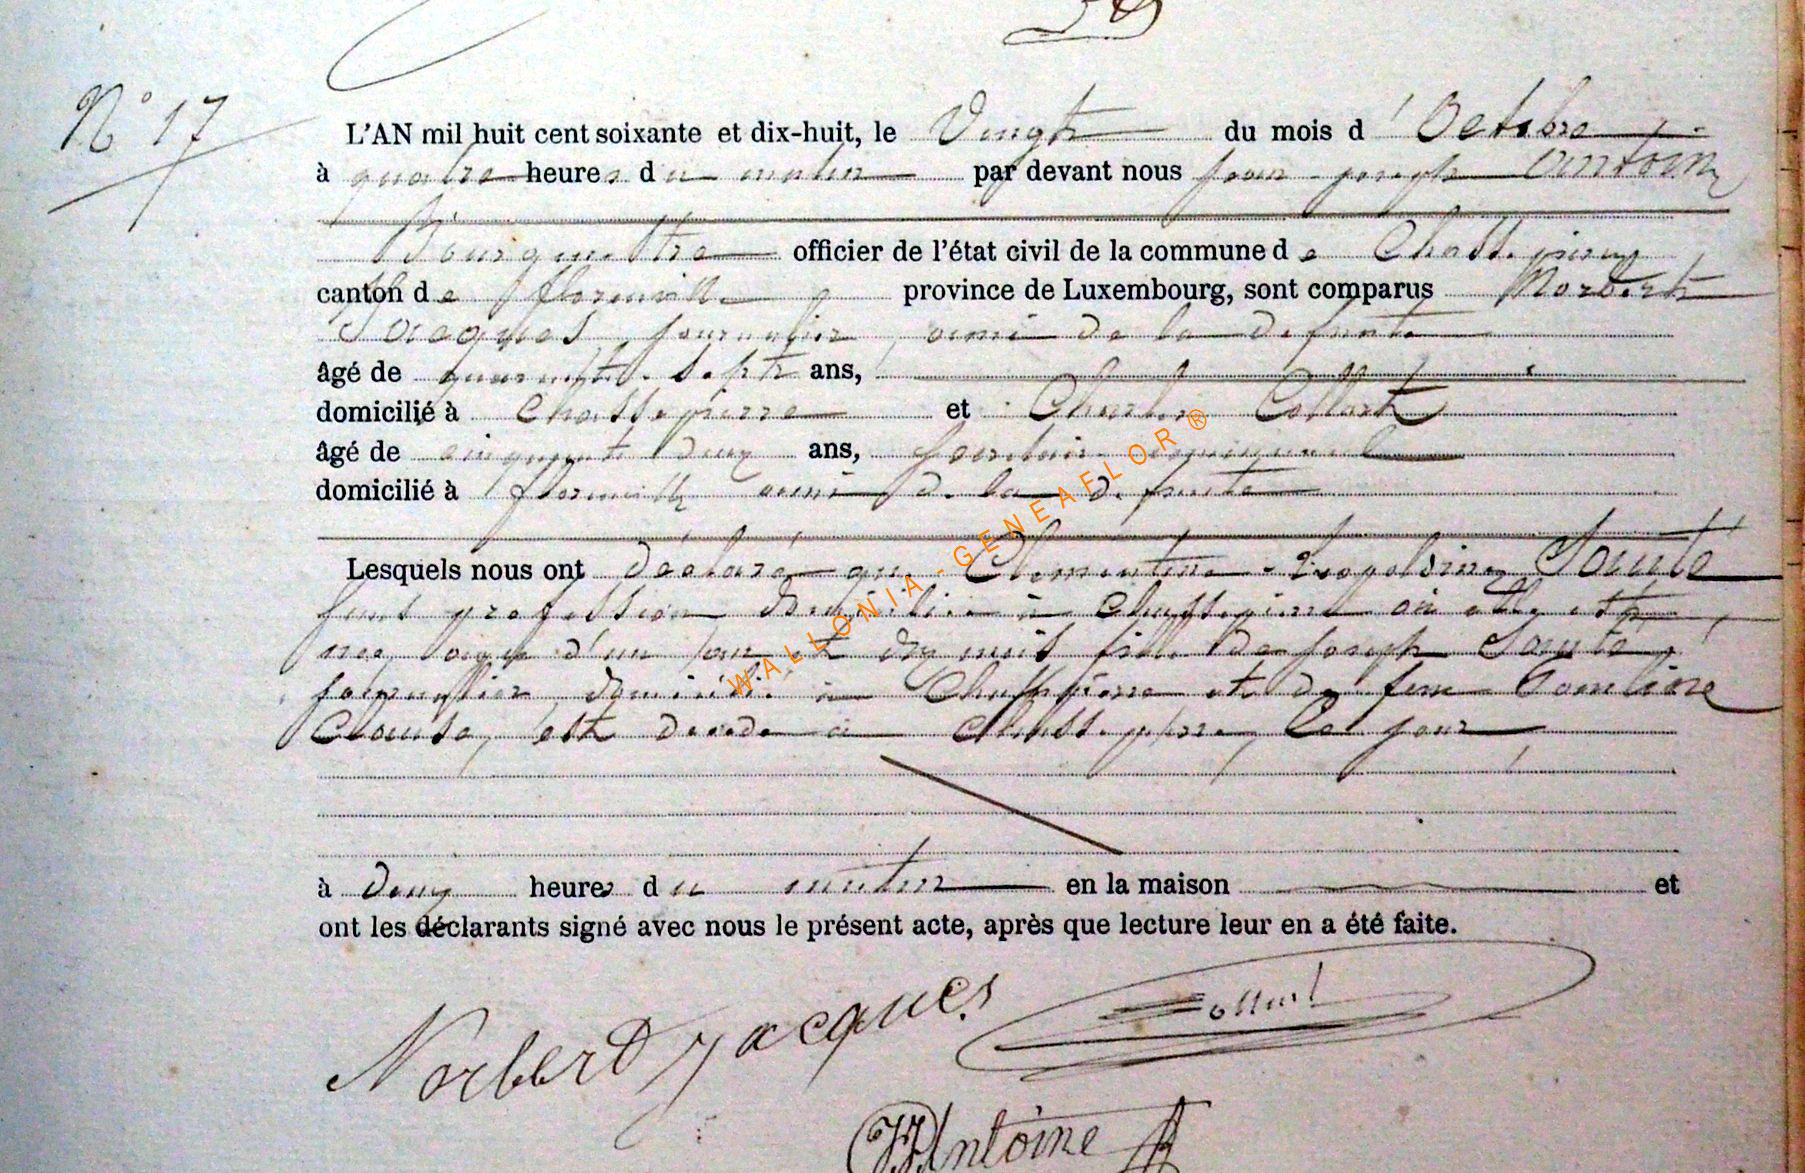 N° 17
L'AN mil huit cent soixante et dix-huit, le Vingt du mois d'Octobre
à quatre heures du matin par devant nous Jean joseph Antoine
Bourgmestre officier de l'état civil de la commune de Chassepierre
canton de florenville province de Luxembourg, sont comparus Norbert
Jacques journalier, ami de la defunte
âgé de quarante sept ans,
domicilié à Chassepierre et Charles Collart
âgé de cinquante deux ans,
domicilié à florenville ami de la defunte
Lesquels nous ont déclaré que Clementine Leopoldine Souté
sans profession domiciliée à Chassepierre où elle est
née, agée d'un an et dix mois fille de Joseph Souté,
journalier domicilié à Chassepierre et de feue
est decedée à Chassepierre, Ce jour
à deux heures du matin en la maison et
ont les déclarants signé avec nous le présent acte, après que lecture leur en a été faite.
Norbert Jacques Collart
JJAntoine
WALLONIA-GENEAFLOR®